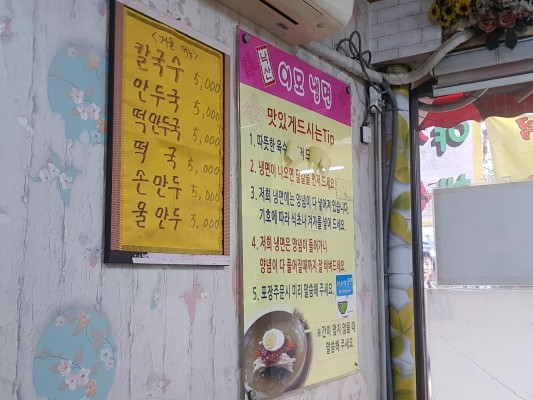 <겨울 메뉴>
칼국수 5,000
만두국 5,000
떡만두국 5,000
떡국 5,000
손만두 5,000
물만두 3,000
낙산
이모냉면
맛있게드시는Tip
1. 따뜻한 육수
2. 냉면이 나오면 달걀을 먼저 드세요.
3. 저희 냉면에는 양념이 다 넣어져 있습니다.
기호에 따라 식초나 겨자를 넣어 드세요.
4. 저희 냉면은 양념이 들어가니
양념이 다 풀어질때까지 잘 비벼드세요.
5. 포장주문시 미리 말씀해 주세요.
※간이 맞지 않을 때
말씀해 주세요.